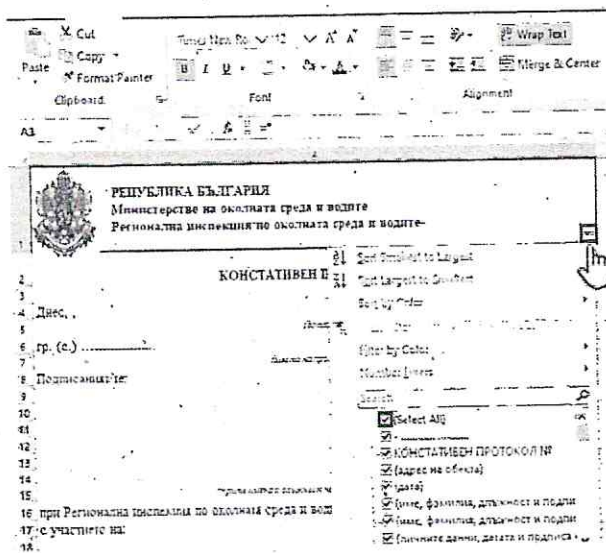 Cut
Copy
Paste
Format Painter
Clipboard
Times New Ro 12 A A
B I U A
Font
Wrap Text
Merge & Center
Alignment
A1
РЕПУБЛИКА БЪЛГАРИЯ
Министерство на околната среда и водите
Регионална инспекция по околната среда и водите-
1
2 КОНСТАТИВЕН П
3
4 Днес,
5
6 гр. (с.)
7
8 Подписаният/те:
9
10
11
12
13
14
15
16 при Регионална инспекция по околната среда и вод
17 с участието на:
18
Sort Smallest to Largest
Sort Largest to Smallest
Sort by Color
Filter by Color
Number Filters
Search
(Select All)
КОНСТАТИВЕН ПРОТОКОЛ №
(адрес на обекта)
(дата)
(име, фамилия, длъжност и подпи
(име, фамилия, длъжност и подпи
(личните данни, датата и подписа